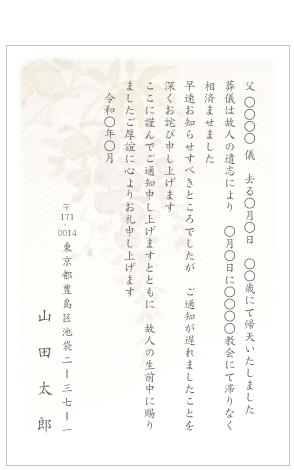 父 〇〇〇〇 儀 去る〇月〇日 〇〇歳にて帰天いたしました
葬儀は故人の遺志により 〇月〇日に〇〇〇〇教会にて滞りなく
相済ませました
早速お知らせすべきところでしたが ご通知が遅れましたことを
深くお詫び申し上げます
ここに謹んでご通知申し上げますとともに 故人の生前中に賜り
ましたご厚誼に心よりお礼申し上げます
令和〇年〇月
〒171-0014 東京都豊島区池袋二ー三七ー一
山田太郎